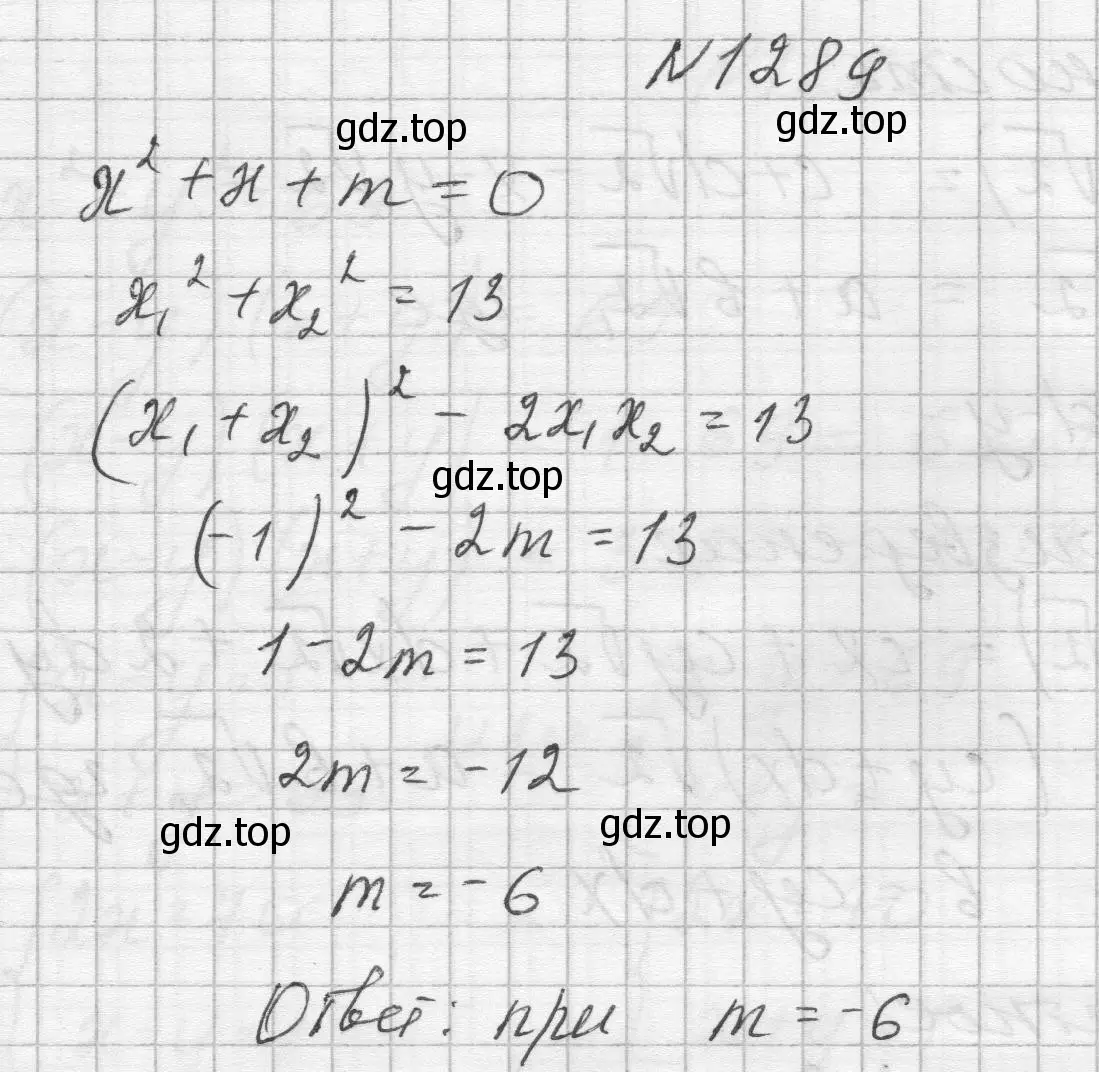 N1289
gdz.top
gdz.top
x² + x + m = 0
x₁² + x₂² = 13
(x₁ + x₂)² - 2x₁x₂ = 13
gdz.top
(-1)² - 2m = 13
1 - 2m = 13
2m = -12
gdz.top
gdz.top
m = -6
Ответ: при m = -6